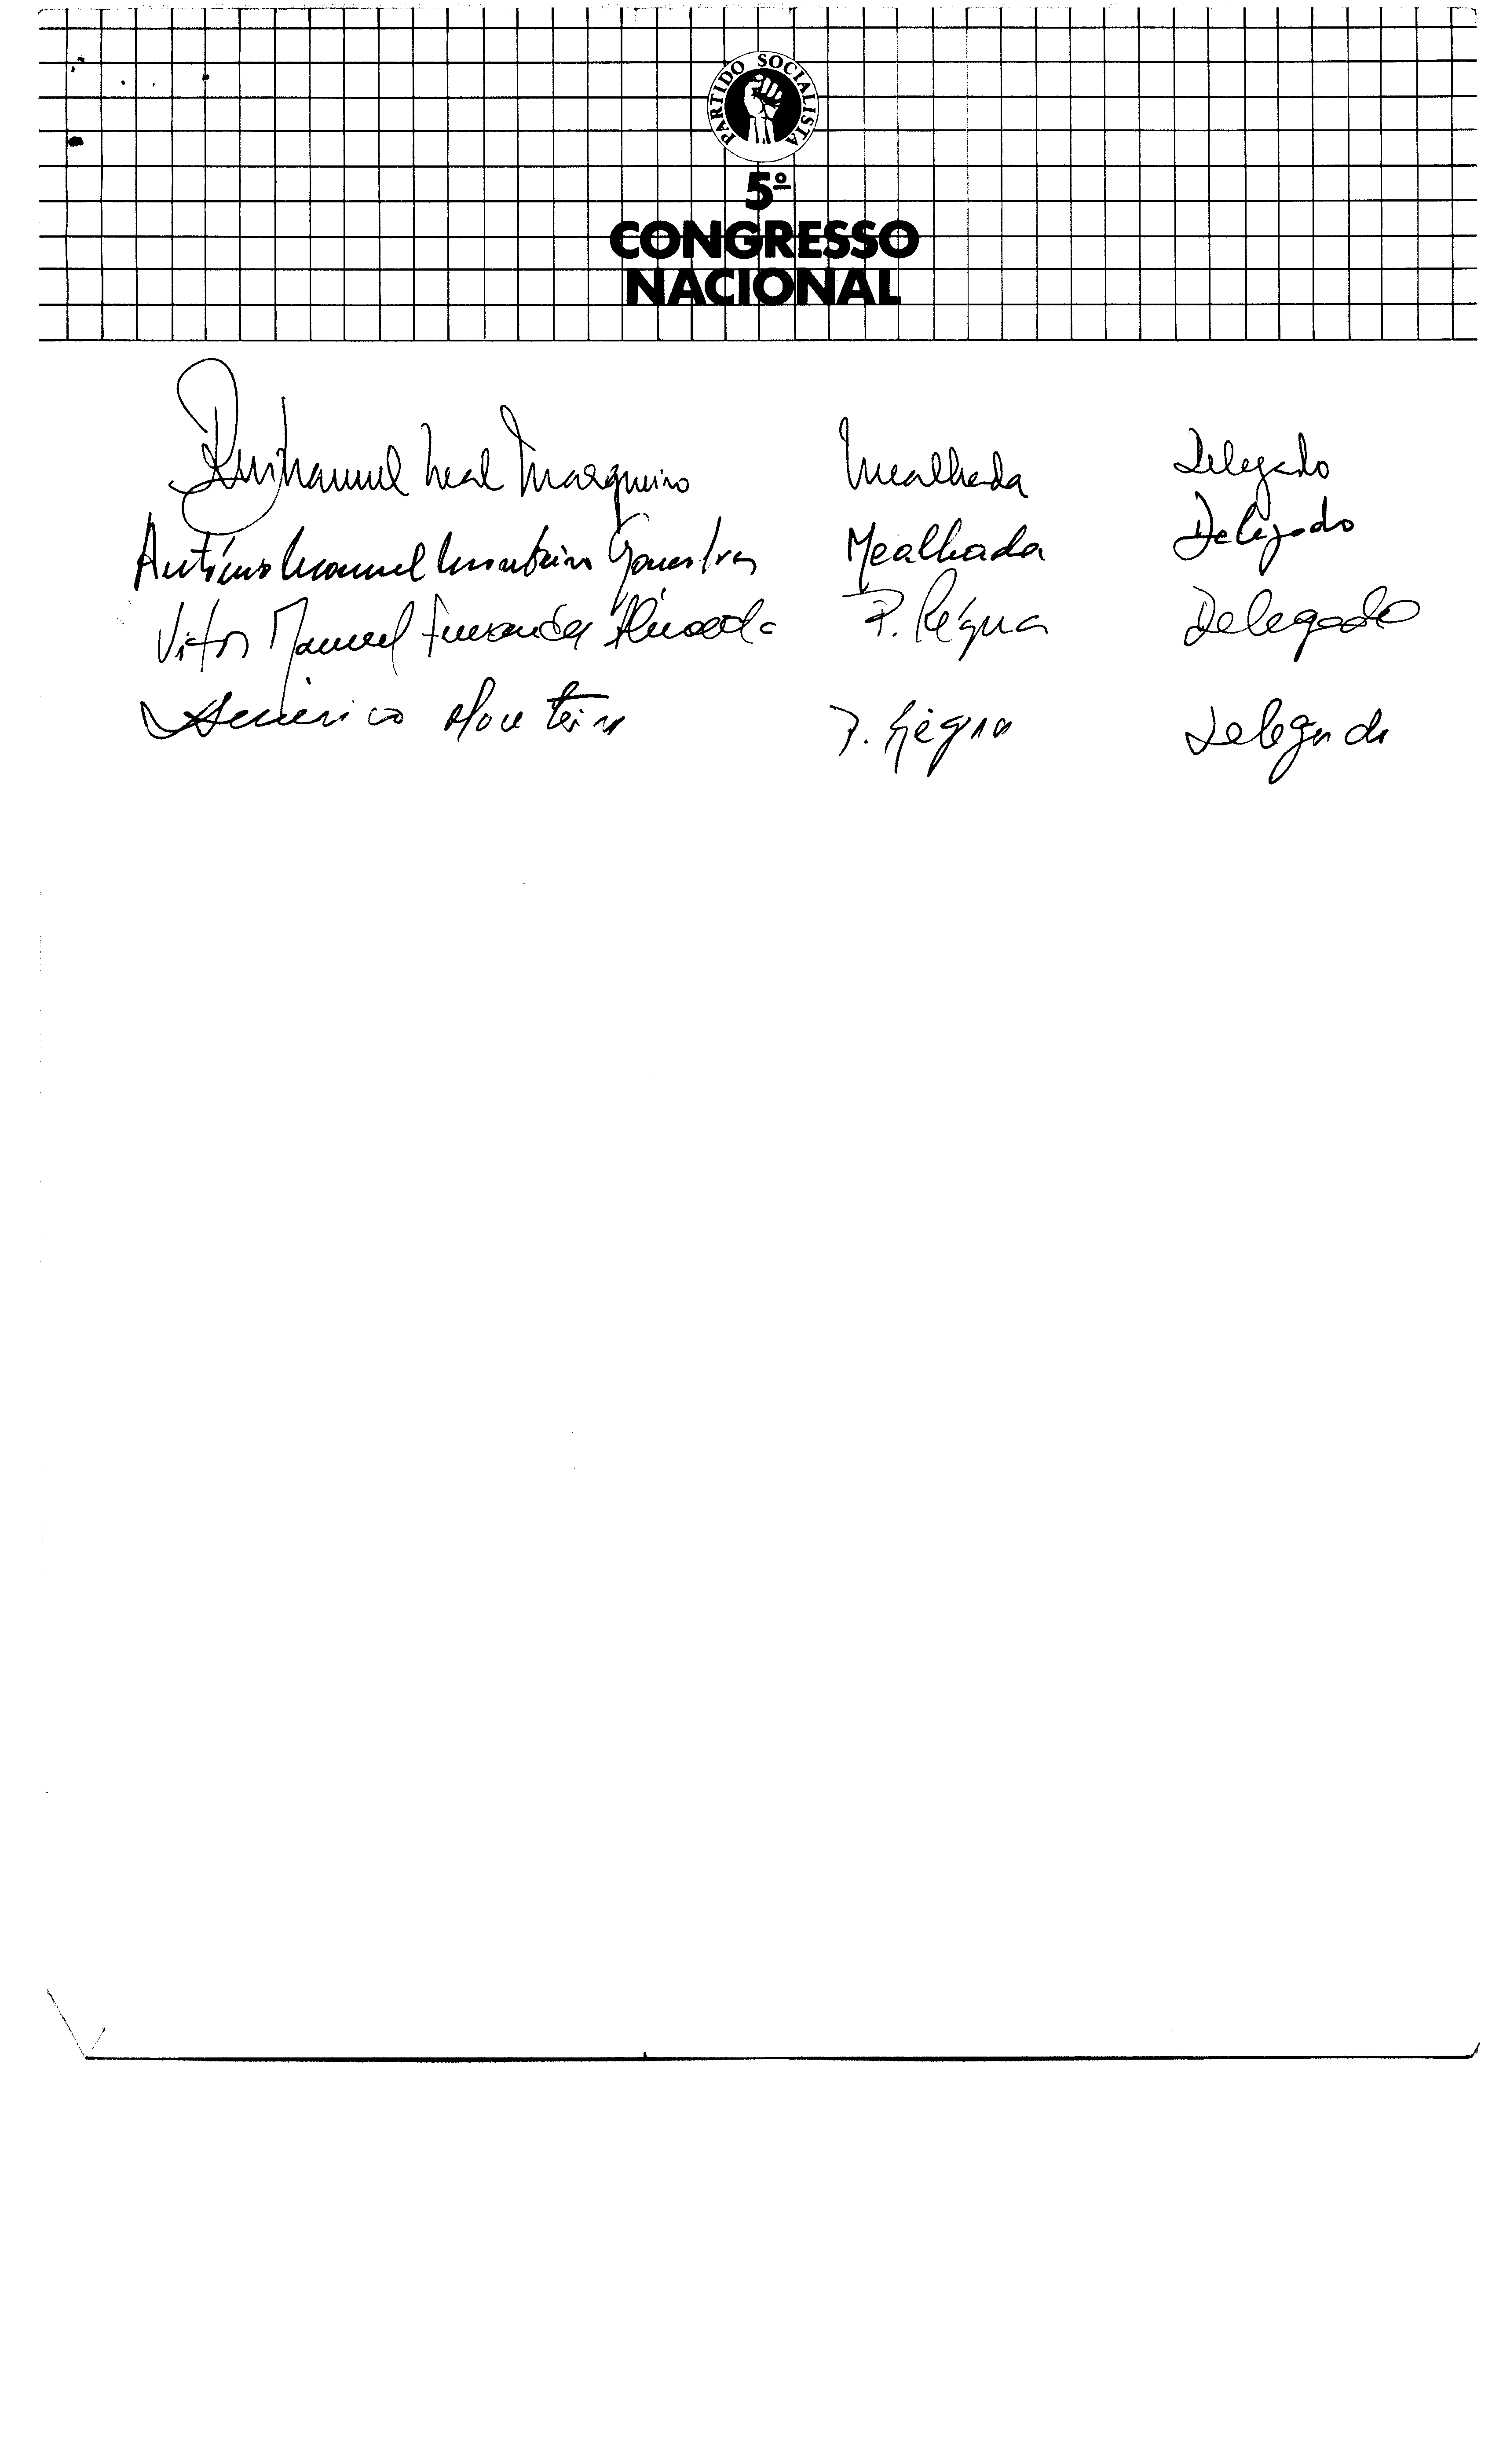 PARTIDO SOCIALISTA
5º
CONGRESSO
NACIONAL
Rui Manuel Leal Marqueiro Mealhada Delegado
António Manuel Monteiro Mealhada Delegado
Vitor Manuel Fernandes Almeida P. Régua Delegado
Américo Monteiro P. Régua Delegado